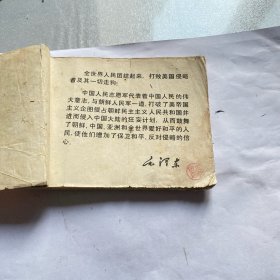 全世界人民团结起来，打败美国侵略
者及其一切走狗！
中国人民志愿军代表着中国人民的伟
大意志，与朝鲜人民军一道，打破了美帝国
主义企图侵占朝鲜民主主义人民共和国并
进而侵入中国大陆的狂妄计划，从而鼓舞
了朝鲜、中国、亚洲和全世界爱好和平的人
民，使他们增加了保卫和平、反对侵略的信
心。
毛泽东